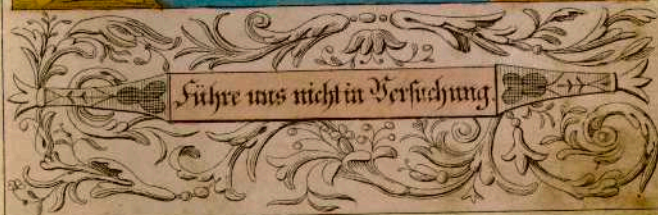 Führe uns nicht in Versuchung.